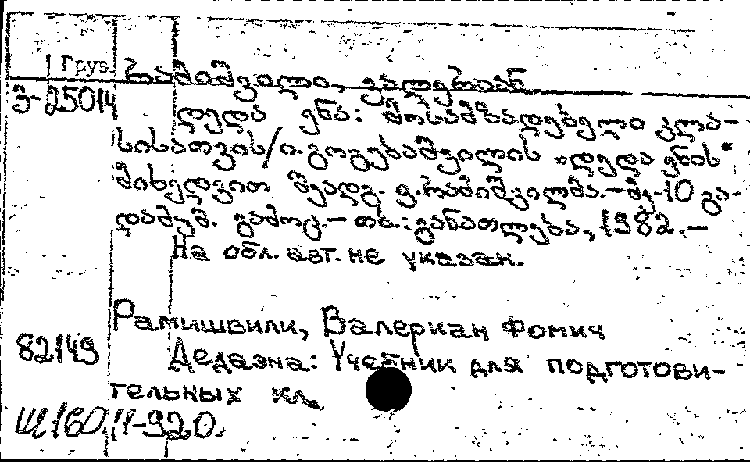 Груз.
რამიშვილი, ვალერიან
3-25014
დედა ენა: მოსამზადებელი კლა-
სისათვის/ი. გოგებაშვილის „დედა ენის“
მიხედვით შეადგ. ვ. რამიშვილმა.—მე-10 გა-
დამუშ. გამოც.— თბ.: განათლება, 1982.—
На обл. авт. не указан.
Рамишвили, Валериан Фомич
82149
Дедаэна: Учебник для подготови-
тельных кл.
Ш160.11-920.